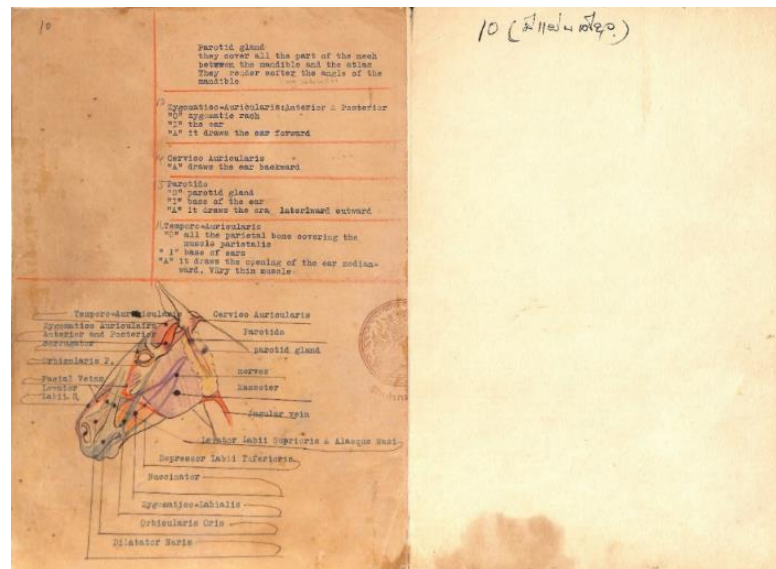 10
Parotid gland
they cover all the part of the neck
between the mandible and the atlas
They render softer the angle of the
mandible
13
Zygomatico-Auricularis:Anterior & Posterior
"O" zygomatic rach
"I" the ear
"A" it draws the ear forward
14
Cervico Auricularis
"A" draws the ear backward
15
Parotido
"O" parotid gland
"I" base of the ear
"A" it draws the era, laterlward outward
Temporo-Auricularis
"O" all the parietal bone covering the
muscle parietalis
" I" base of ears
"A" it draws the opening of the ear median-
ward. Very thin muscle
Temporo-Auricularis
Cervico Auricularis
Zygomatico Auricularis
Anterior and Posterior
Corrugator
Parotido
parotid gland
Orbicularis P.
nerves
Facial Veins
Levator
Labii S.
Masseter
Angular vein
Levator Labii Suprioris & Alaeque Nasi
Depressor Labii Inferioris
Buccinator
Zygomatico-Labialis
Orbicularis Oris
Dilatator Naris
10 (มีแผ่นเดียว)